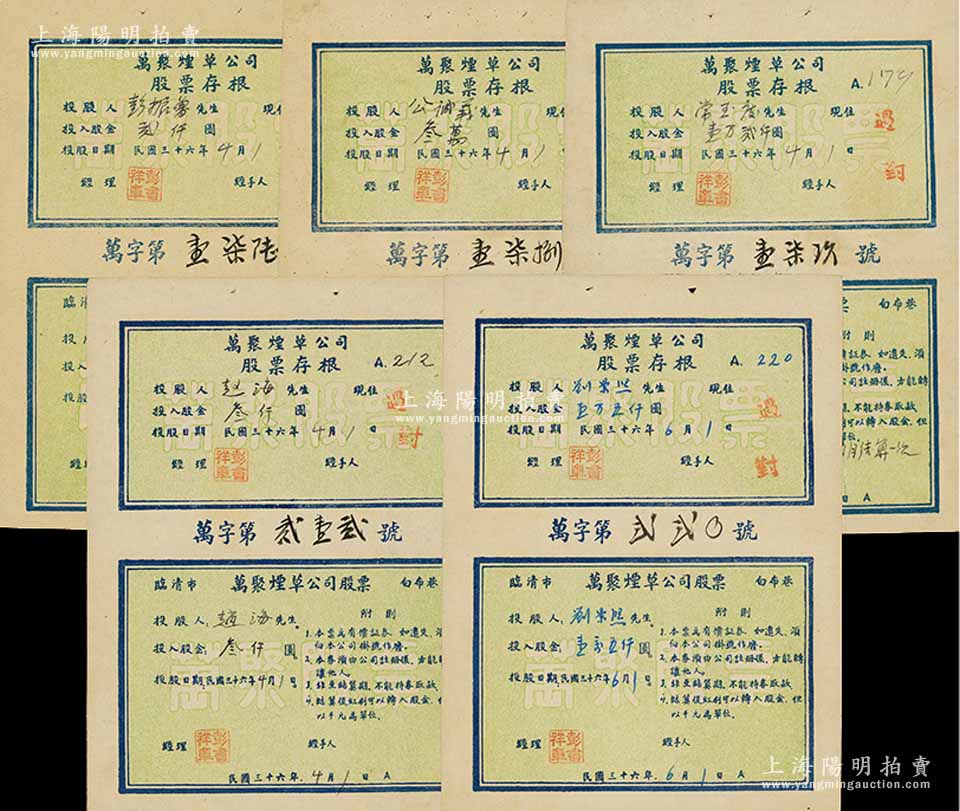 上海陽明拍賣
www.yangmingauction.com
萬聚煙草公司
股票存根
投股人 彭振 先生 現住
投入股金 貳仟 圓
投股日期 民國三十六年4月1
經理 經手人
萬字第 壹柒陸
臨清
萬聚煙草公司
股票存根
投股人 公誠義 先生 現住
投入股金 叁萬 圓
投股日期 民國三十六年4月1
經理 經手人
萬字第 壹柒捌
上海陽明拍賣
www.yangmingauction.com
萬聚煙草公司
股票存根 A.179
投股人 常玉 先生 現住
投入股金 壹万貳仟圓
投股日期 民國三十六年4月1日
過對
經理 經手人
萬字第 壹柒玖 號
票 白布巷
附則
萬聚煙草公司
股票存根 A.212
投股人 趙海 先生 現住
投入股金 叁仟 圓
投股日期 民國三十六年4月1日
過對
經理 經手人
萬字第 貳壹貳 號
臨清市 萬聚煙草公司股票
投股人 趙海 先生
投入股金 叁仟 圓
投股日期民國三十六年4月1日
經理
民國三十六年4月1日 A
萬聚煙草公司
股票存根 A.220
投股人 劉崇照 先生 現住
投入股金 壹万五仟圓
投股日期 民國三十六年6月1日
過對
經理 經手人
萬字第 貳貳0 號
臨清市 萬聚煙草公司股票 白布巷
投股人 劉崇照 先生
投入股金 壹万五仟圓
投股日期民國三十六年6月1日
附則
1. 本票為有價証券 如遺失 須
向本公司掛號作廢。
2. 本券須由公司註冊後 方能轉
讓他人。
3. 非至結算期 不能持券取款
4. 結算後紅利可以轉入股金 但
以千元為單位。
經理 經手人
民國三十六年6月1日 A
上海陽明拍賣
www.yangmingauction.com